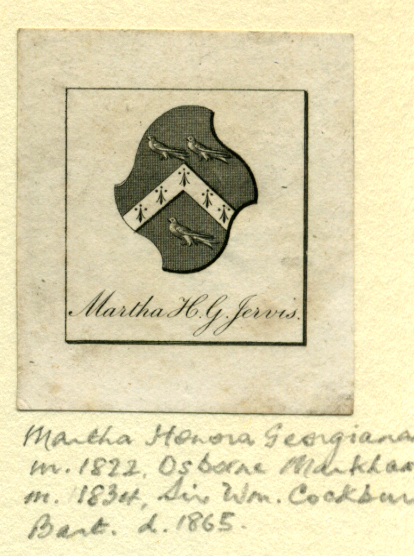 Martha H. G. Jervis.
Martha Honora Georgiana
m. 1822, Osborne Markham
m. 1834, Sir Wm. Cockbur
Bart. d. 1865.